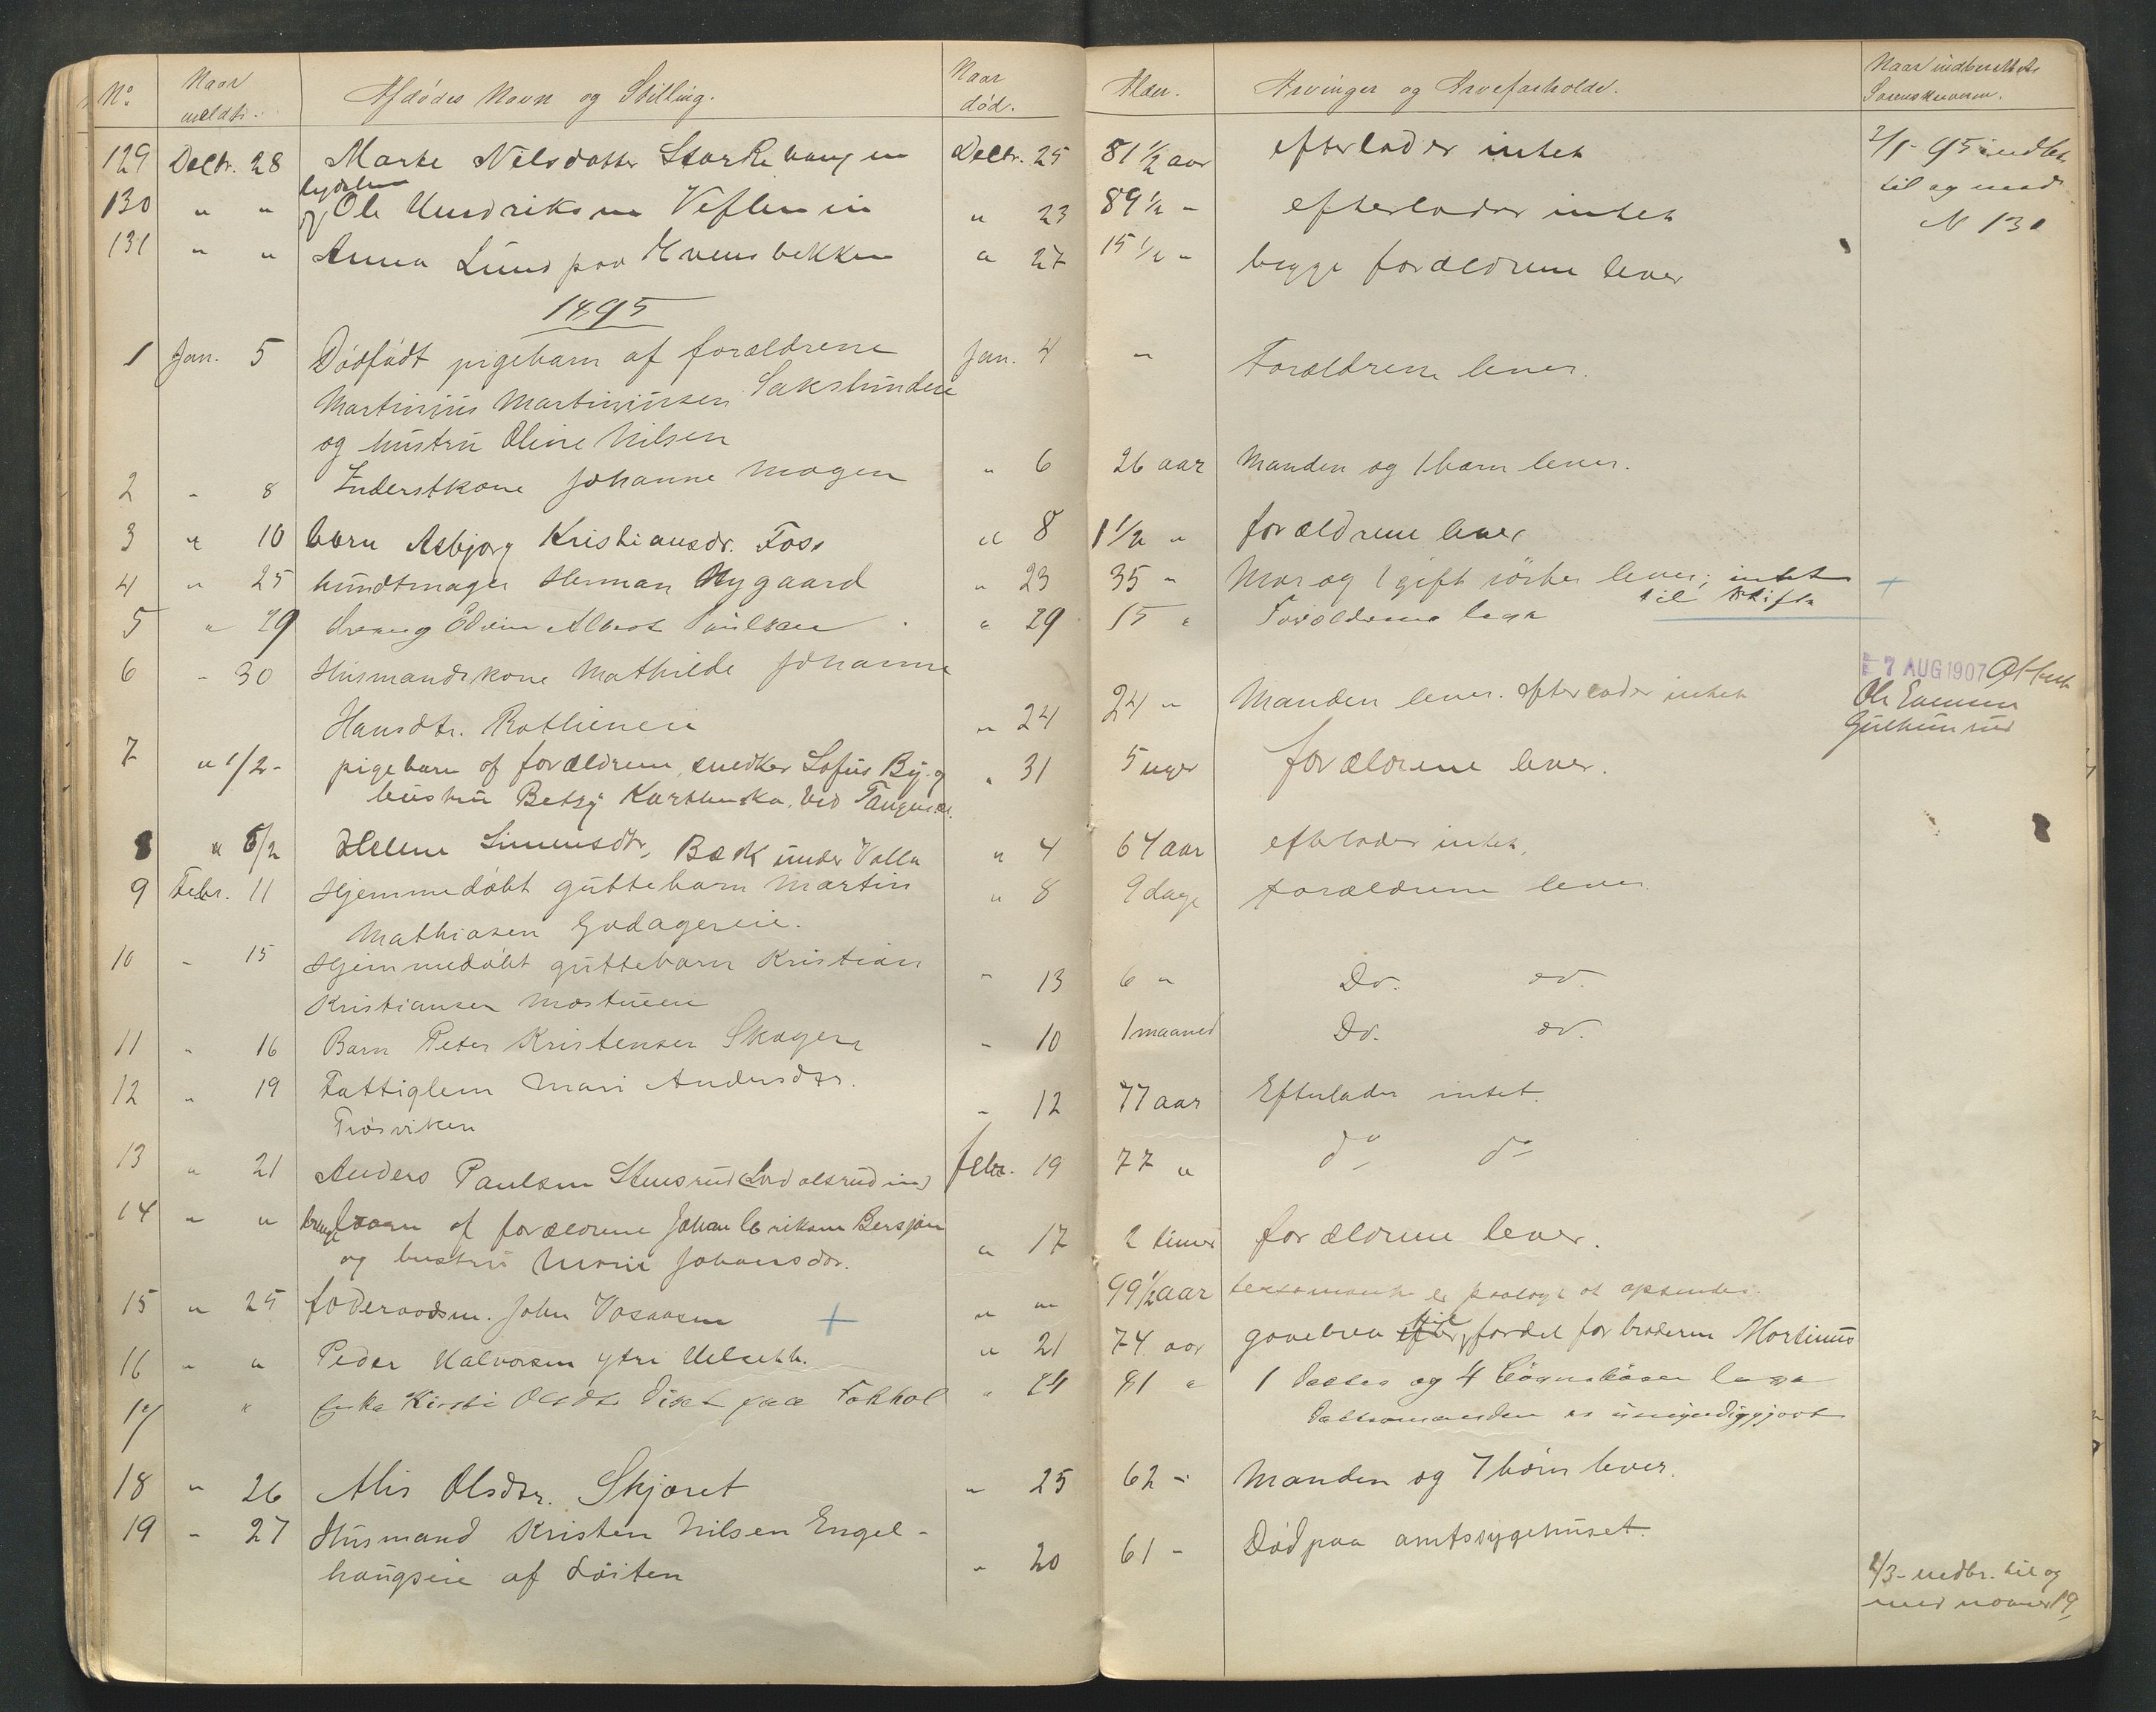 No. Naar meldt. Afdødes Navn og Stilling. Naar død. Alder. Arvinger og Arveforholde. Naar indberettet Sorenskriveren.
129 Decbr. 28 Marte Nilsdatter Starkehaugen Decbr. 25 81 1/2 aar efterlader intet 2/1 - 95 indbr.
til og med
N 130
130 " " Ole Hendriksen " 23 89 1/2 - efterlader intet
131 " " Anna Lund paa Kvernbekken " 27 15 1/2 " begge forældrene lever
1895
1 Jan. 5 Dødfødt pigebarn af forældrene Jan. 4 " Forældrene lever.
Martinius Martiniusen Sakslundeie
og hustru Oline Nilsen
2 " 8 Inderstkone Johanne Mogen " 6 26 aar Manden og 1 barn lever.
3 " 10 barn Asbjørg Kristiansdr. Foss " 8 1 1/2 " forældrene lever
4 " 25 bundtmager Herman Nygaard " 23 35 " Mor og 1 gift søster lever; intet
til skifte
5 " 29 dreng Edvin Albert Paulsen " 29 15 " Forældrene leva
6 " 30 Husmandskone Mathilde Johanne
Hansdtr. Rotlieneie " 24 24 " Manden lever. Efterlader intet
7 AUG 1907
7 " 1/2 - pigebarn af forældrene, snedker Lofus By og " 31 5 uger forældrene lever.
hustru Betzy ved
8 " 5/2 Helene Simensdtr, Bæk under Valla " 4 64 aar efterlader intet.
9 Febr. 11 Hjemmedøbt guttebarn Martin " 8 9 dage forældrene lever.
Mathiasen Godagereie.
10 " 15 Hjemmedøbt guttebarn Kristian " 13 6 " Do. do.
Kristiansen Mostueeie
11 " 16 Barn Peter Kristensen Skogen " 10 1 maaned Do. do.
12 " 19 Fattiglem Mari Andersdtr. " 12 77 aar Efterlader intet.
Trøsviken
13 " 21 Anders Paulsen Stensrud febr. 19 77 " do do
14 " " barn af forældrene Johan Eriksen Bersjøen " 17 2 timer forældrene lever.
og hustru Marie Johansdr.
15 " 25 føderaadsm. John Vosaasen " " 99 1/2 aar testamente er paalagt at opsendes.
16 " " Peder Halvorsen ytre " 21 74 aar gavebrev til fordel for broderen Martinus
17 " enke Kirsti Olsdtr Diset paa Fokhol " 24 81 " 1 datter og 4 leva
Dattermanden er umyndiggjort
18 " 26 Alis Olsdtr. Skjæret " 25 62 - Manden og 7 børn lever.
19 " 27 Husmand Kristen Nilsen Engel-
haugseie af Løiten " 20 61 - Død paa amtssygehuset.
2/3 - indbr. til og
med nomer 19